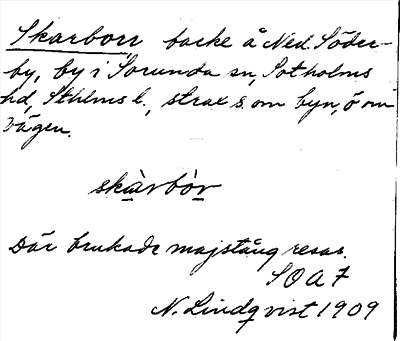 Skarborr backe å Ned. Söder-
by, by i Sorunda sn, Sotholms
hd, Sthlms l., strax s. om byn, ö om
vägen.
skàrbòr
Där brukade majstång resas.
SOA 7
N. Lindqvist 1909